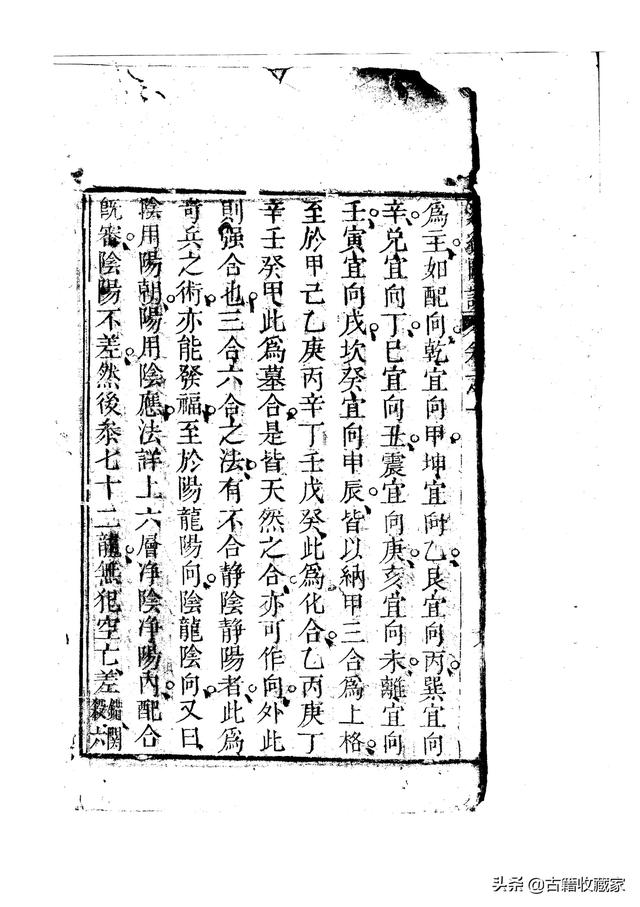 為主如配向乾宜向甲坤宜向乙艮宜向丙巽宜向
辛兌宜向丁巳宜向丑震宜向庚亥宜向未離宜向
壬寅宜向戌坎癸宜向申辰皆以納甲三合為上格
至於甲己乙庚丙辛丁壬戊癸此為化合乙丙庚丁
辛壬癸甲此為墓合是皆天然之合亦可作向外此
則强合也三合六合之法有不合静陰静陽者此為
奇兵之術亦能發福至於陽龍陽向陰龍陰向又曰
陰用陽朝陽用陰應法詳上六層净陰净陽內配合
既審陰陽不差然後叅七十二龍無犯空亡差錯關
殺六
头条 @古籍收藏家